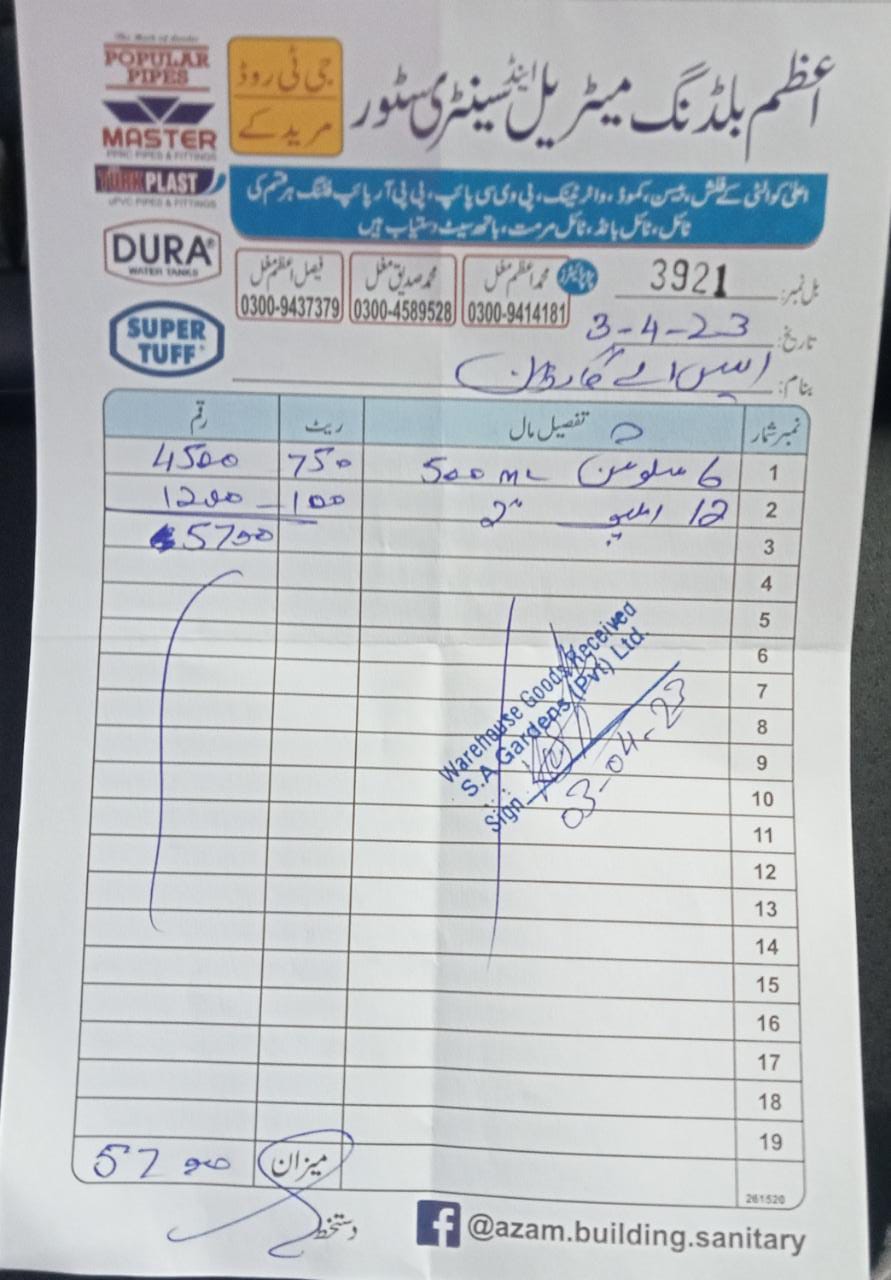 The Mark of Quality
POPULAR
PIPES
MASTER
PPRC PIPES & FITTINGS
TURKPLAST
uPVC PIPES & FITTINGS
DURA
WATER TANKS
SUPER
TUFF
جی ٹی روڈ
مریدکے
اعظم بلڈنگ میٹریل اینڈ سینٹری سٹور
اعلیٰ کوالٹی کے فلش، بیسن، کموڈ، واٹر ٹینک، پی وی سی پائپ، پی پی آر پائپ فٹنگ ہر قسم کی
ٹائل، ٹائل بانڈ، ٹائل مرمت، باتھ سیٹ دستیاب ہیں
پروپرائیٹرز
محمد اعظم مغل
0300-9414181
محمد صدیق مغل
0300-4589528
فیصل اعظم مغل
0300-9437379
بل نمبر: 3921
تاریخ: 3-4-23
بنام: ایس اے گارڈن
نمبر شمار تفصیل مال ریٹ رقم
1 6 سلوشن 500 ML 750 4500
2 12 ایلبو 2" 100 1200
3 5700
4
5
6
7
8
9
10
11
12
13
14
15
16
17
18
19
Warehouse Goods Received
S.A Gardens (Pvt) Ltd.
Sign
03-04-23
میزان 5700
261520
دستخط
@azam.building.sanitary